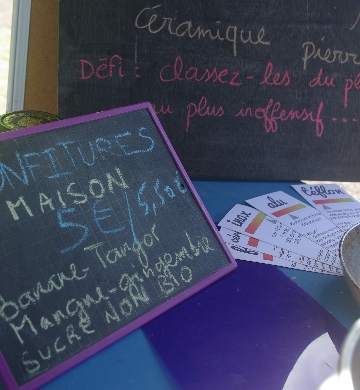 céramique pierr
Défi : classez-les du pe
au plus inoffensif...
ONFITURES
MAISON
5€/5,50€
Banane-Tangor
Mangue-gingembre
SUCRE NON BIO
inox
alu
téflon